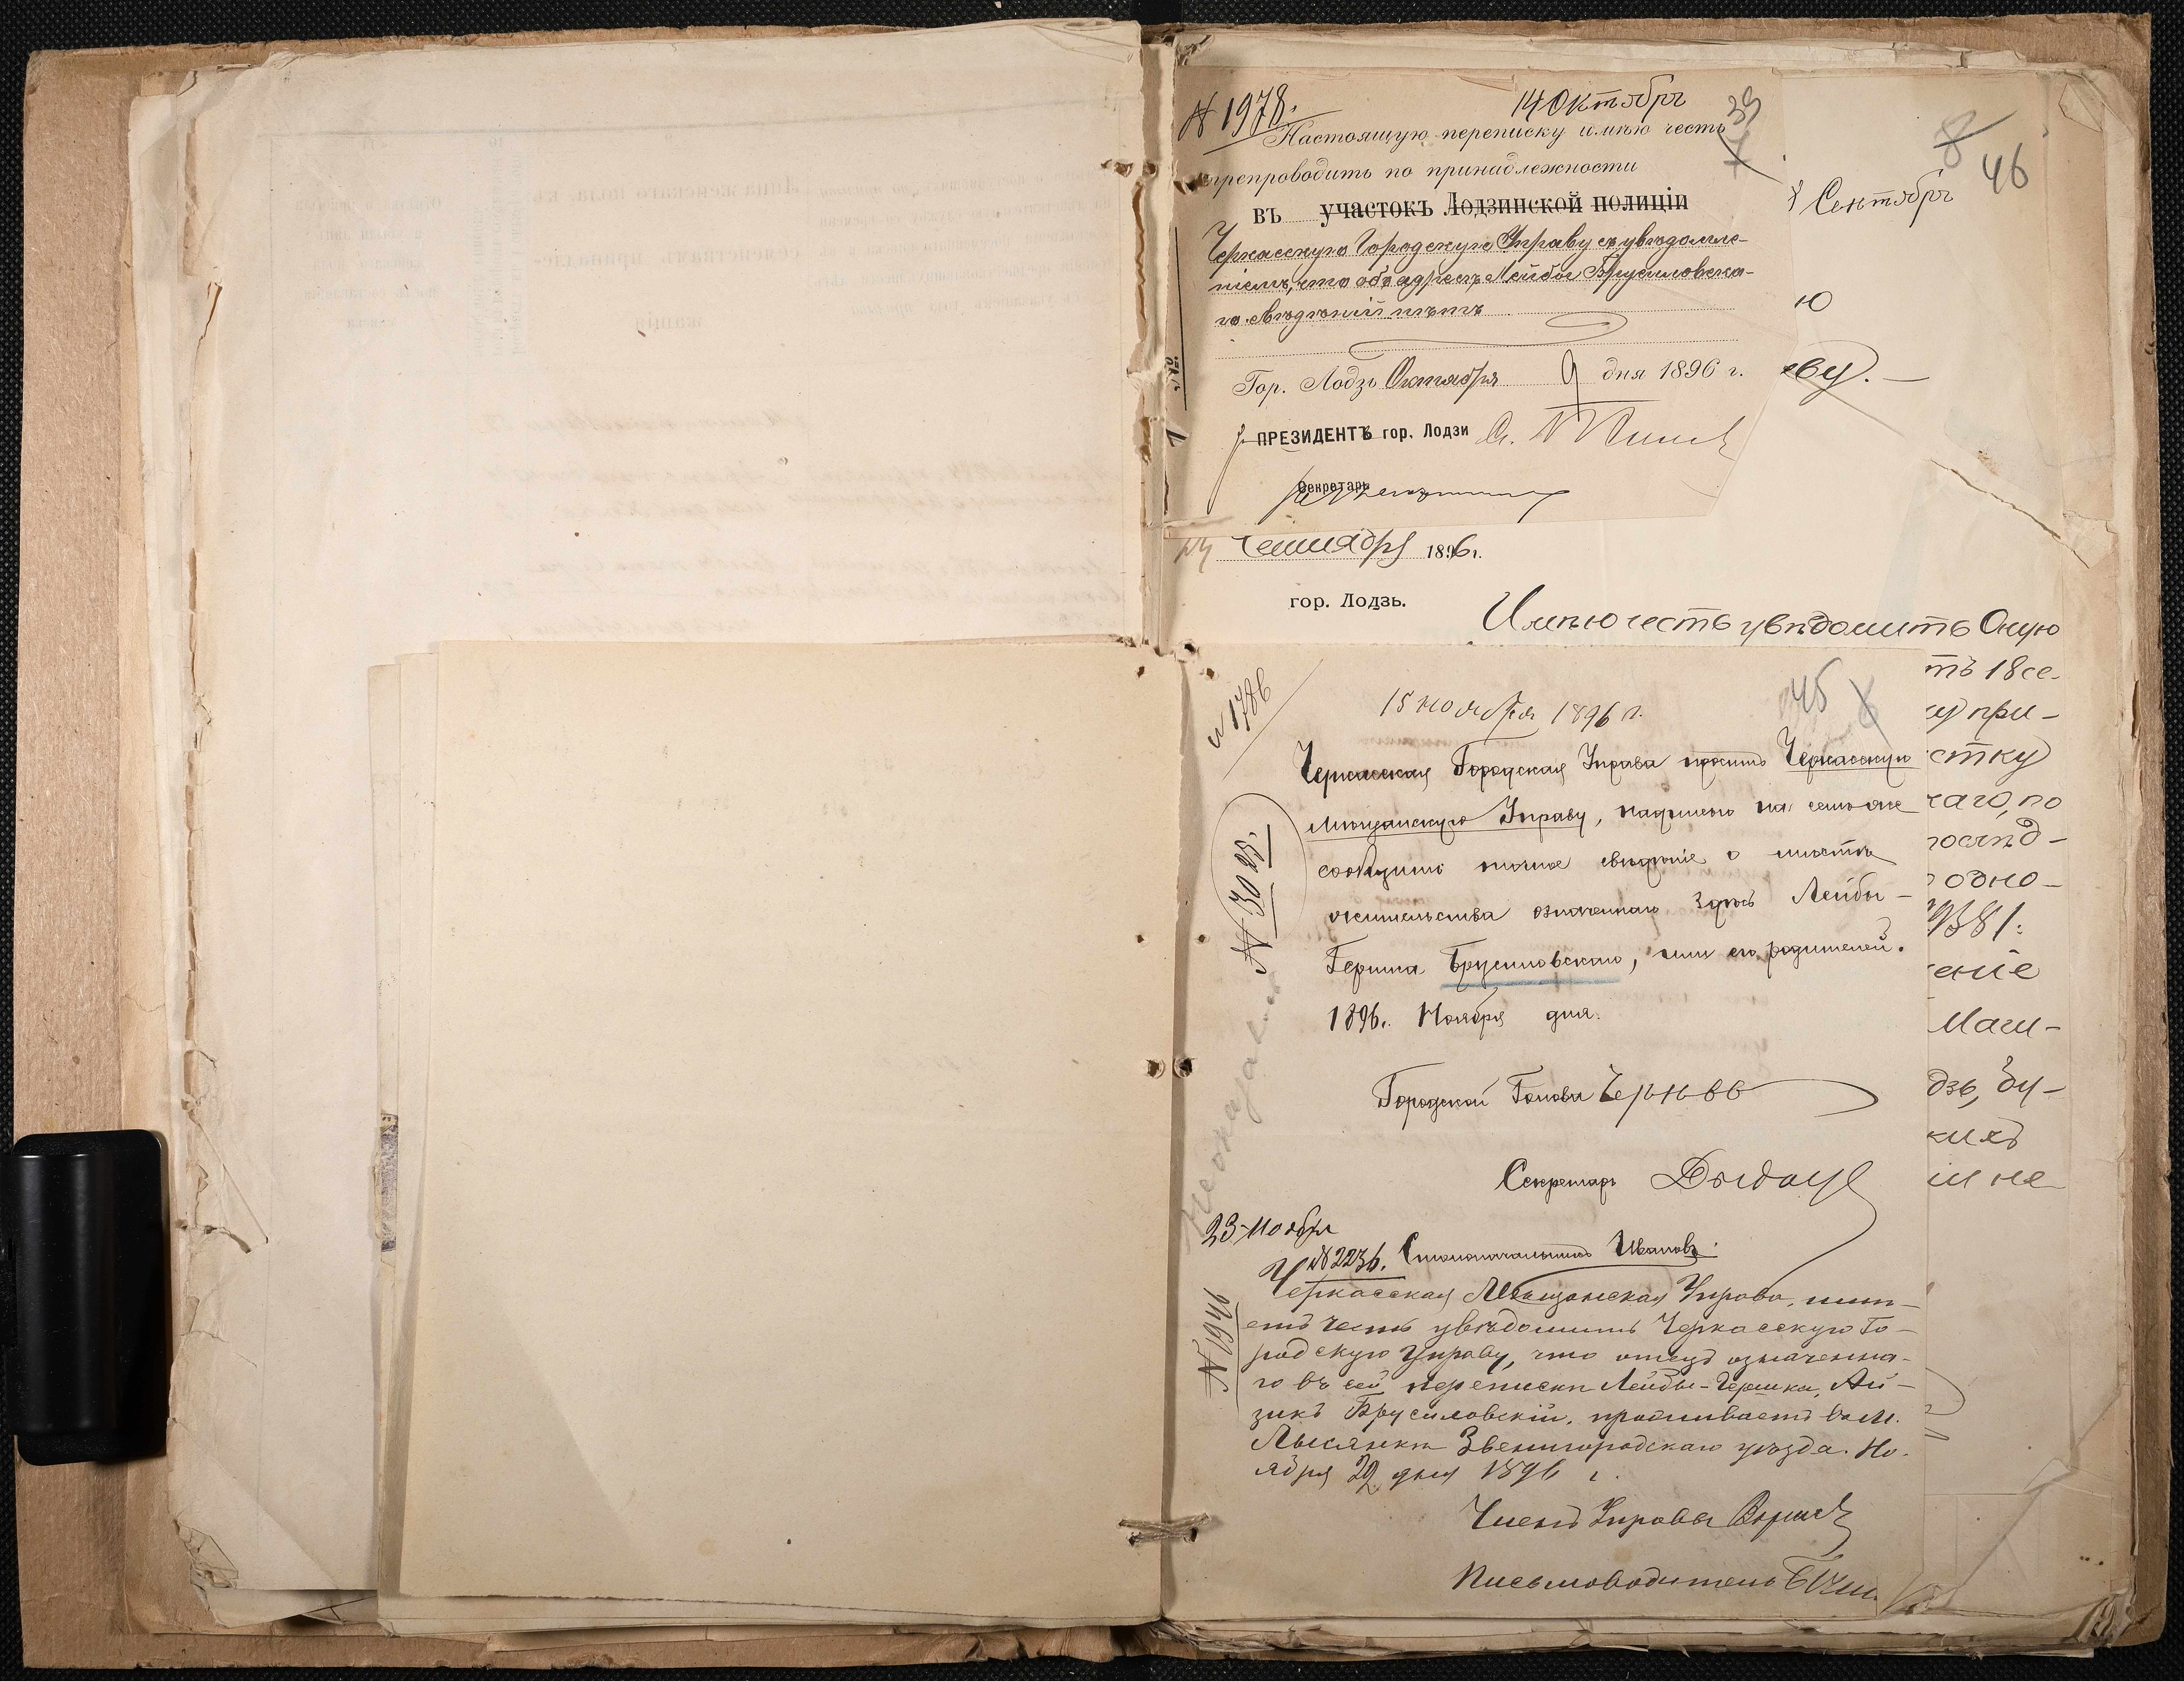 № 1978.
14 Октябрь
39
7
Настоящую переписку имѣю честь
препроводить по принадлежности
въ участокъ Лодзинской полиціи
Черкасскую Городскую Управу съ увѣдомле-
ніемъ, что объ адресѣ Лейбы Брусиловска-
го свѣдѣній нѣтъ
Гор. Лодзь Октября 9 дня 1896 г.
ПРЕЗИДЕНТЪ гор. Лодзи
Секретарь
8
46
Сентябрь
ю
ву.
Сентября 1896 г.
гор. Лодзь.
Имѣю честь увѣдомить Оную
тъ 18 се-
у при-
стку
аго, по
послѣд-
одно-
9381:
ение
Маги-
дзь, бу-
кихъ
и не
№ 1786
15 ноября 1896 г.
45
Черкасская Городская Управа проситъ Черкасскую
Мѣщанскую Управу, надписью на семъ же
сообщить точное свѣдѣніе о мѣстѣ
жительства означеннаго здѣсь Лейбы-
Гершка Брусиловскаго, или его родителей.
1896 г. Ноября дня.
№ 3025.
Городской Голова Черновъ
Секретарь
23 Ноября
№ 2236. Столоначальникъ Ивановъ.
№ 1946
Черкасская Мѣщанская Управа, имѣ-
етъ честь увѣдомить Черкасскую Го-
родскую Управу, что отецъ означенна-
го въ сей перепискѣ Лейбы-Гершка, Ай-
зикъ Брусиловскій, проживаетъ въ м.
Лысянкѣ Звенигородскаго уѣзда. Но-
ября 22 дня 1896 г.
Членъ Управы
Письмоводитель